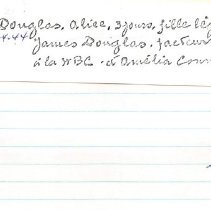 Douglas, Alice, 3 jours, fille lég
4-44 James Douglas, facteur
à la WBC. et d'Amélia Conn